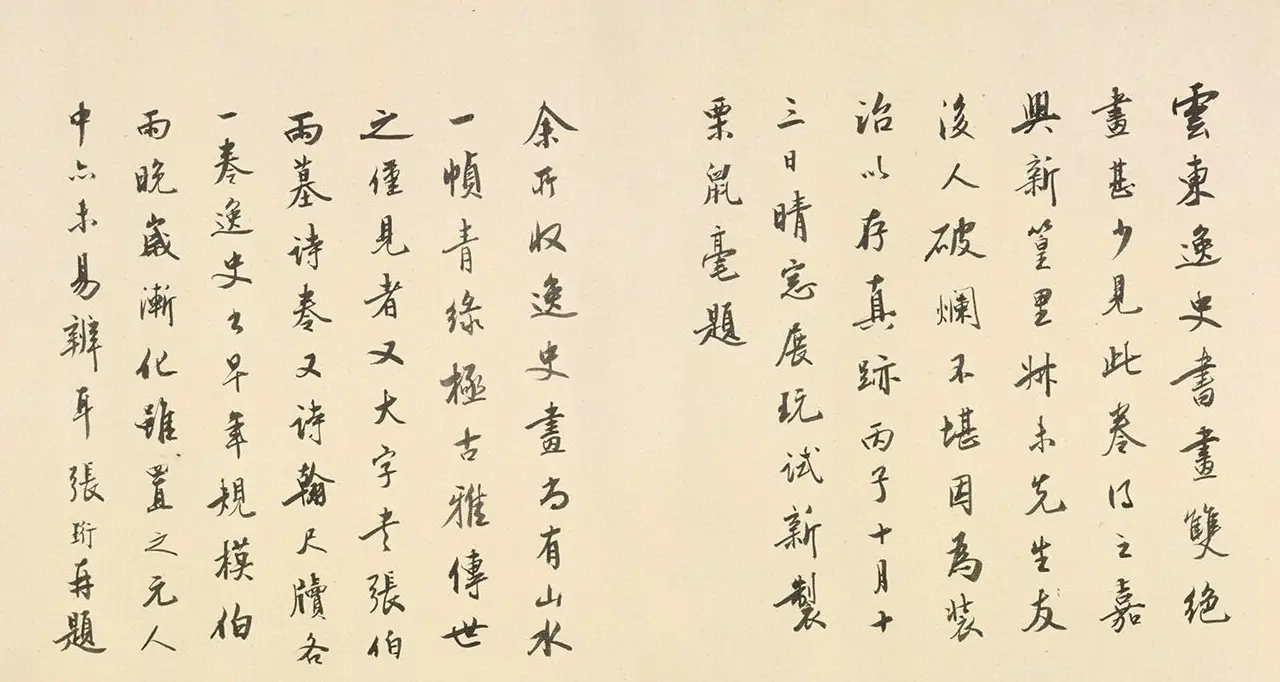 雲東逸史書畫雙絕
畫甚少見此卷得之嘉
興新篁里妹未先生友
後人破爛不堪因為裝
治以存真跡丙子十月十
三日晴窓展玩試新製
栗鼠毫題
余所收逸史畫尚有山水
一幀青綠極古雅傳世
之僅見者又大字書張伯
雨墓詩卷又詩翰尺牘各
一卷逸史書早年規模伯
雨晚歲漸化雖置之元人
中亦未易辨耳 張珩再題